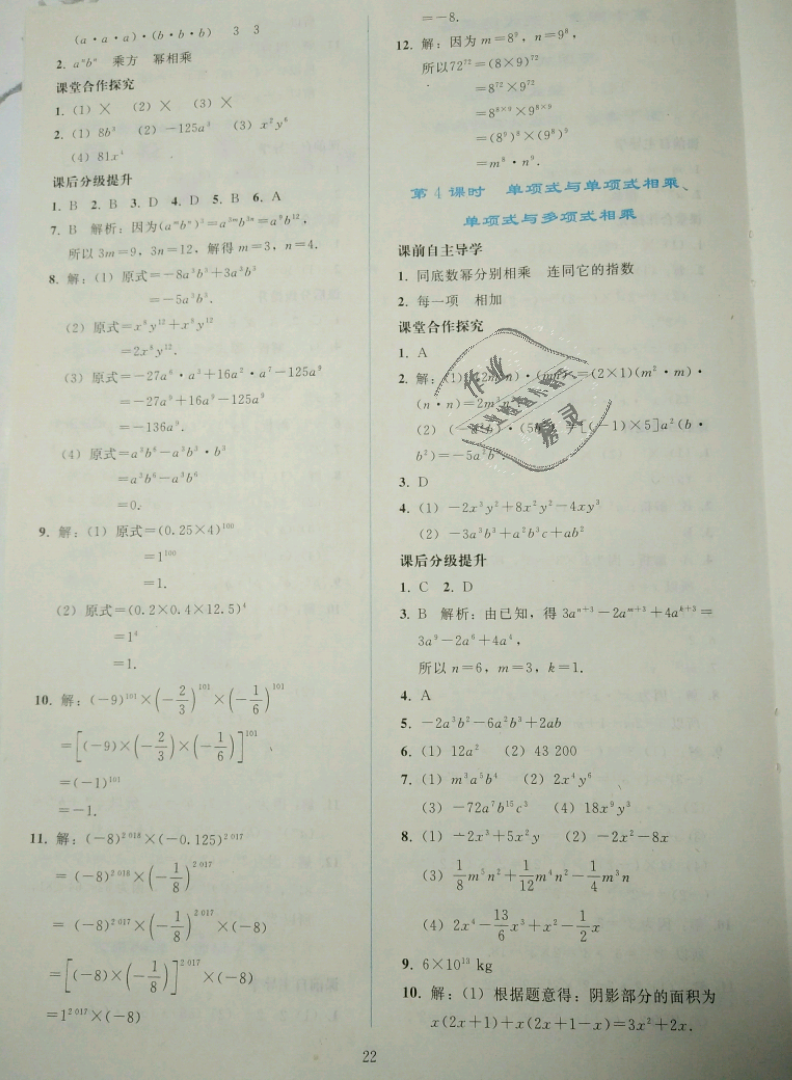 (a·a·a)·(b·b·b) 3 3
2. aⁿbⁿ 乘方 幂相乘
课堂合作探究
1. (1) × (2) × (3) ×
2. (1) 8b³ (2) -125a³ (3) x²y⁶
(4) 81x⁴
课后分级提升
1. B 2. B 3. D 4. D 5. B 6. A
7. B 解析:因为(aᵐbⁿ)³=a³ᵐb³ⁿ=a⁹b¹²,
所以 3m=9, 3n=12, 解得 m=3, n=4.
8. 解:(1) 原式=-8a³b³+3a³b³
=-5a³b³.
(2) 原式=x⁸y¹²+x⁸y¹²
=2x⁸y¹².
(3) 原式=-27a⁶·a³+16a²·a⁷-125a⁹
=-27a⁹+16a⁹-125a⁹
=-136a⁹.
(4) 原式=a³b⁶-a³b³·b³
=a³b⁶-a³b⁶
=0.
9. 解:(1) 原式=(0.25×4)¹⁰⁰
=1¹⁰⁰
=1.
(2) 原式=(0.2×0.4×12.5)⁴
=1⁴
=1.
10. 解:(-9)¹⁰¹×(-2/3)¹⁰¹×(-1/6)¹⁰¹
=[(-9)×(-2/3)×(-1/6)]¹⁰¹
=(-1)¹⁰¹
=-1.
11. 解:(-8)²⁰¹⁸×(-0.125)²⁰¹⁷
=(-8)²⁰¹⁸×(-1/8)²⁰¹⁷
=(-8)²⁰¹⁷×(-1/8)²⁰¹⁷×(-8)
=[(-8)×(-1/8)]²⁰¹⁷×(-8)
=1²⁰¹⁷×(-8)
=-8.
12. 解:因为 m=8⁹, n=9⁸,
所以72⁷²=(8×9)⁷²
=8⁷²×9⁷²
=8⁸ˣ⁹×9⁸ˣ⁹
=(8⁹)⁸×(9⁸)⁹
=m⁸·n⁹.
第 4 课时 单项式与单项式相乘、
单项式与多项式相乘
课前自主导学
1. 同底数幂分别相乘 连同它的指数
2. 每一项 相加
课堂合作探究
1. A
2. 解:(1) ·( =(2×1)(m²·m)·
(n·n)=2m³
(2) ( ·(5 -1)×5]a²(b·
b²)=-5a²b³.
3. D
4. (1) -2x³y²+8x²y²-4xy³
(2) -3a³b³+a²b³c+ab²
课后分级提升
1. C 2. D
3. B 解析:由已知,得 3aⁿ⁺³-2aᵐ⁺³+4aᵏ⁺³=
3a⁹-2a⁶+4a⁴,
所以 n=6, m=3, k=1.
4. A
5. -2a³b²-6a²b³+2ab
6. (1) 12a² (2) 43 200
7. (1) m³a⁵b⁴ (2) 2x⁴y⁶
(3) -72a⁷b¹⁵c³ (4) 18x⁹y³
8. (1) -2x³+5x²y (2) -2x²-8x
(3) 1/8m⁵n²+1/12m⁴n²-1/4m³n
(4) 2x⁴-13/6x³+x²-1/2x
9. 6×10¹³ kg
10. 解:(1) 根据题意得:阴影部分的面积为
x(2x+1)+x(2x+1-x)=3x²+2x.
22
作业
精灵